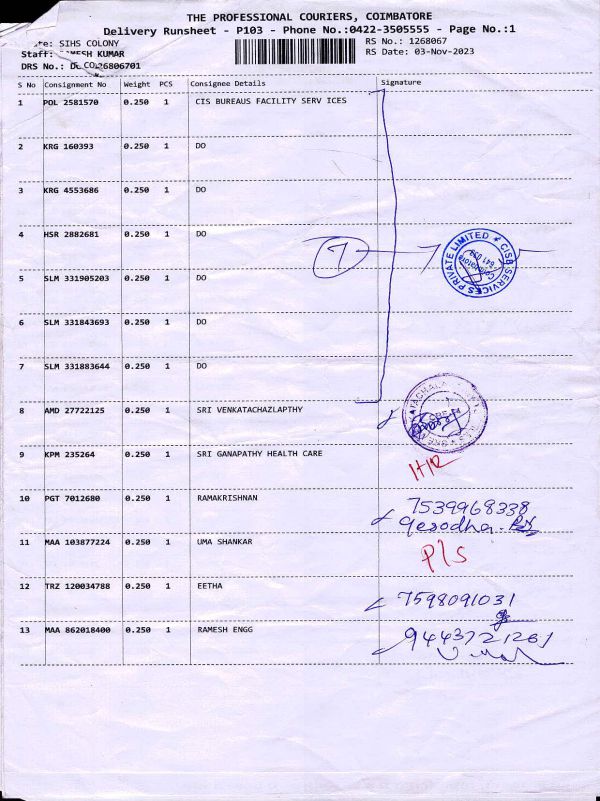 THE PROFESSIONAL COURIERS, COIMBATORE
Delivery Runsheet - P103 - Phone No.:0422-3505555 - Page No.:1
SIHS COLONY
RS No.: 1268067
Staff: KUMAR
RS Date: 03-Nov-2023
DRS No.:
S No Consignment No Weight PCS Consignee Details Signature
1 POL 2581570 0.250 1 CIS BUREAUS FACILITY SERV ICES
2 KRG 160393 0.250 1 DO
3 KRG 4553686 0.250 1 DO
4 HSR 2882681 0.250 1 DO
7
CISB SERVICES PRIVATE LIMITED ★
Coimbatore
641 033
5 SLM 331905203 0.250 1 DO
6 SLM 331843693 0.250 1 DO
7 SLM 331883644 0.250 1 DO
8 AMD 27722125 0.250 1 SRI VENKATACHAZLAPTHY
9 KPM 235264 0.250 1 SRI GANAPATHY HEALTH CARE
10 PGT 7012680 0.250 1 RAMAKRISHNAN 7539968338
11 MAA 103877224 0.250 1 UMA SHANKAR P/S
12 TRZ 120034788 0.250 1 EETHA 7598091031
13 MAA 862018400 0.250 1 RAMESH ENGG 9443721261